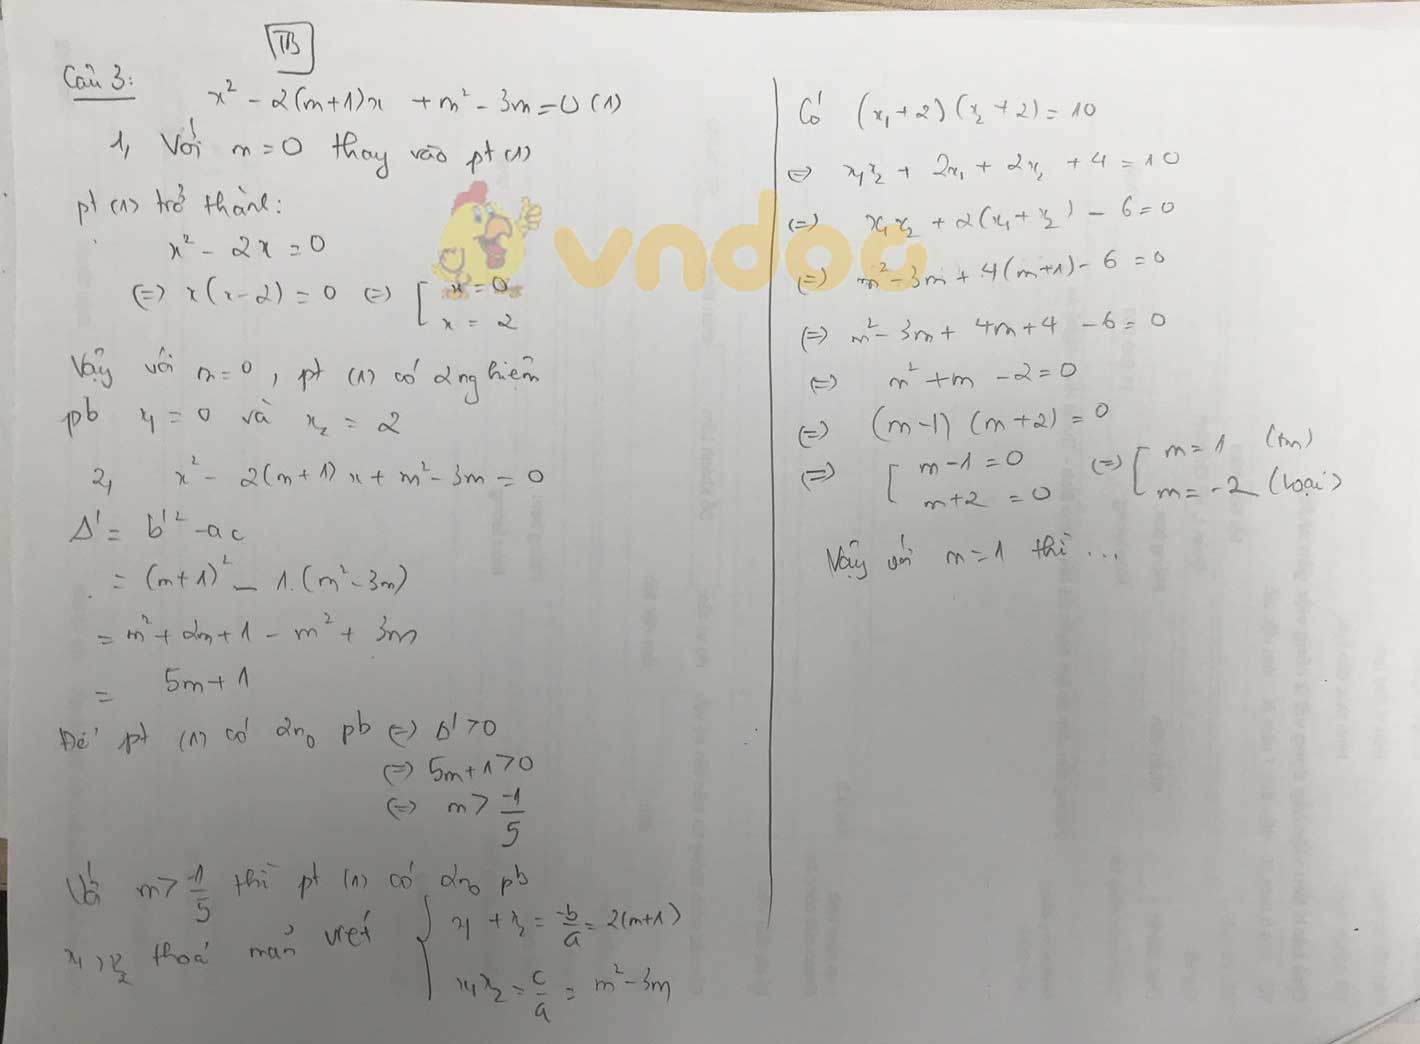 TB
Câu 3:
x² - 2(m+1)x + m² - 3m = 0 (1)
1, Với m = 0 thay vào pt (1)
pt (1) trở thành:
x² - 2x = 0
(=) x(x-2) = 0 (=) [ x = 0
x = 2
Vậy với m = 0, pt (1) có 2 nghiệm
pb x₁ = 0 và x₂ = 2
2, x² - 2(m+1)x + m² - 3m = 0
Δ' = b'² - ac
= (m+1)² - 1.(m² - 3m)
= m² + 2m + 1 - m² + 3m
= 5m + 1
Để pt (1) có 2n₀ pb (=) Δ' > 0
(=) 5m + 1 > 0
(=) m > -1/5
Với m > -1/5 thì pt (1) có 2n₀ pb
x₁, x₂ thoả mãn viét { x₁ + x₂ = -b/a = 2(m+1)
x₁x₂ = c/a = m² - 3m
Có (x₁ + 2)(x₂ + 2) = 10
(=) x₁x₂ + 2x₁ + 2x₂ + 4 = 10
(=) x₁x₂ + 2(x₁ + x₂) - 6 = 0
(=) m² - 3m + 4(m+1) - 6 = 0
(=) m² - 3m + 4m + 4 - 6 = 0
(=) m² + m - 2 = 0
(=) (m-1)(m+2) = 0
(=) [ m - 1 = 0 (=) [ m = 1 (tm)
m + 2 = 0 m = -2 (loại)
Vậy với m = 1 thì ...
vndoc